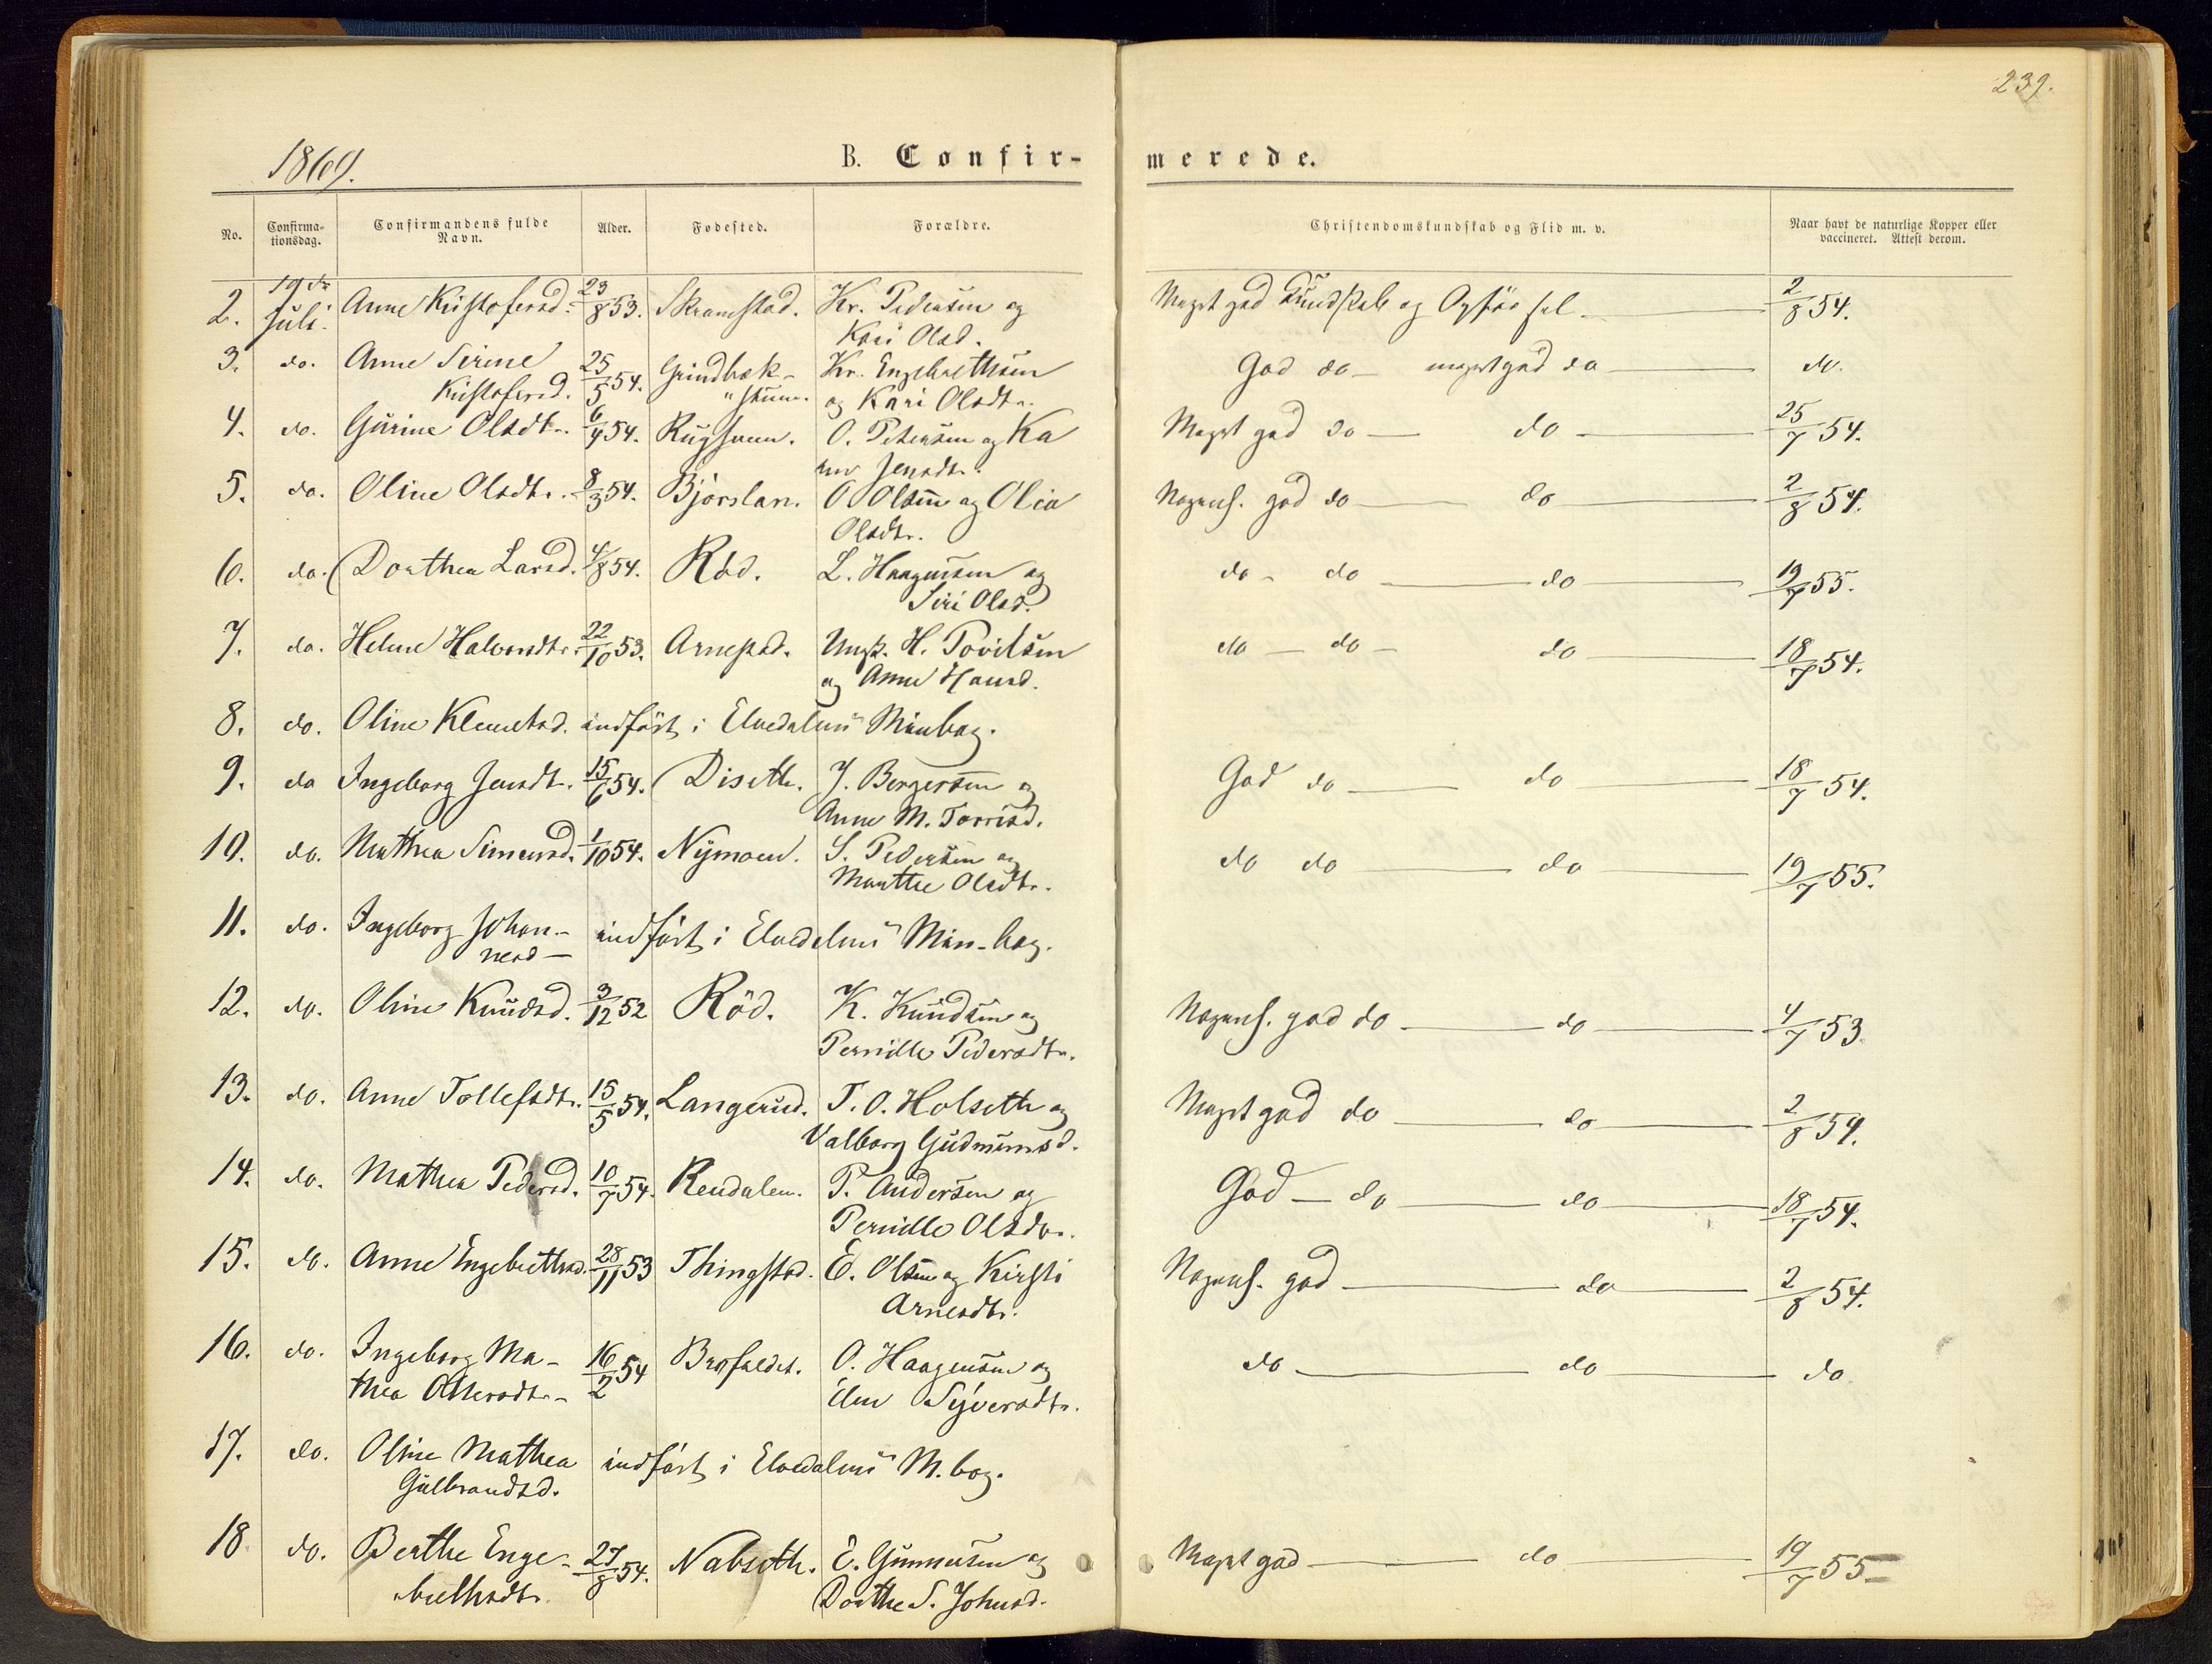 239.
1869.
B. Confir-
merede.
No.
Confirma-
tionsdag.
Confirmandens fulde
Navn.
Alder.
Fødested.
Forældre.
Christendomskundskab og Flid m. v.
Naar havt de naturlige Kopper eller
vaccineret. Attest derom.
2. Juli. Anne Kristofersd. 23/8 53. Skramstad. Kr. Pedersen og Meget god Kundskab og Opførsel 2/8 54.
Kari Olsd.
3. do. Anne Sirine 25/5 54. Grindbæk- Kr. Engebrethsen God do meget god do do.
Kristofersd. og Kari Olsdtr.
4. do. Gurine Olsdtr. 6/4 54. O. Petersen og Ka Meget god do do 25/7 54.
Jensdtr.
5. do. Oline Olsdtr. 8/3 54. O Olsen og Olia Nogenl. god do do 2/8 54.
Olsdtr.
6. do. Dorthea Larsd. 4/8 54. Rød. L. Haagensen og do do do 19/7 55.
Siri Olsd.
7. do. Helene Halvorsdtr. 22/10 53. Arnestad. Ungk. H. Povelsen do do do 18/7 54.
og Anne Hansd.
8. do. Oline Klemetsd. indført i Elvedalens Minbog.
9. do Ingeborg Jensdt. 15/6 54. Diseth. J. Bergersen og God do do 18/7 54.
Anne M. Torrisd.
10. do. Mathea Simensd. 1/10 54. Nymoen. S. Pedersen og do do do 19/7 55.
Marthe Olsdtr.
11. do. Ingeborg Johan- indført i Elvedalens Min-bog.
nesd
12. do. Oline Knudsd. 3/12 52 Rød. K. Knudsen og Nogenl. god do do 4/7 53.
Pernille Pedersdtr.
13. do. Anne Tollefsdtr. 15/5 54. Langerud. T. O. Holseth og Meget god do do 2/8 54.
Valborg Gudmunsd.
14. do. Mathea Pedersd. 10/7 54. Rendalen. P. Andersen og God do do 18/7 54.
Pernille Olsdr.
15. do. Anne Engebrethsd. 28/11 53 Thingstad. E. Olsen og Kirsti Nogenl. god do 2/8 54.
Arnesdtr.
16. do. Ingeborg Ma- 16/2 54 O. Haagensen og do do do
thea Ottersdtr. Elen Syversdtr.
17. do. Oline Mathea indført i Elvedalens M. bog.
Gulbrandsd.
18 do. Berthe Enge- 27/8 54. Nabseth. E. Gunnersen og Meget god do 19/7 55
brethsdtr. Dorthe S. Johnsd.